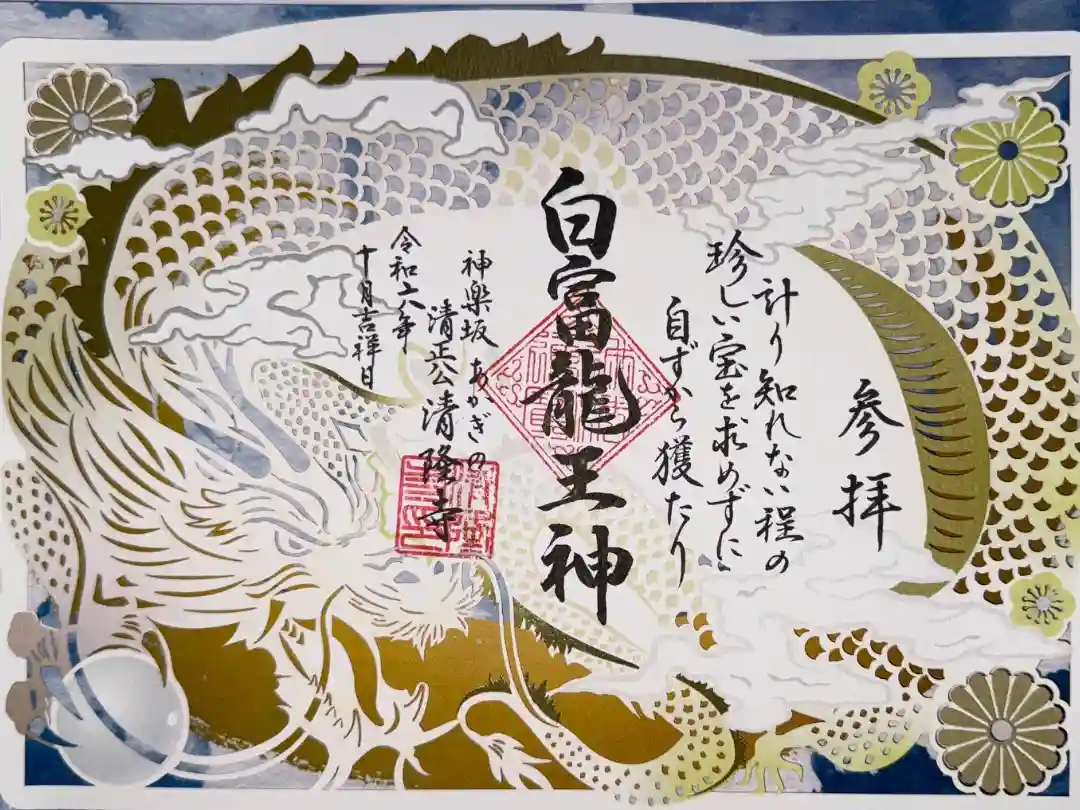 参拝
計り知れない程の
珍しい宝を求めずに
自ずから獲たり
白富龍王神
神楽坂あかぎの
清正公清隆寺
令和六年
十月吉祥日